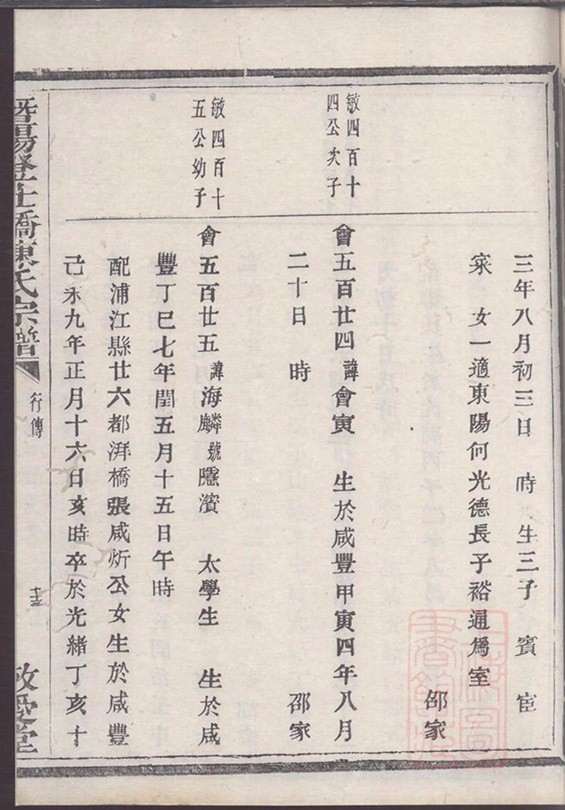 三年八月初三日 時 生三子 賓 宦
寀 女一適東陽何光德長子裕通爲室
邵家
敏四百十
四公次子
會五百廿四諱會寅 生於咸豐甲寅四年八月
二十日 時 邵家
敏四百十
五公幼子
會五百廿五諱海麟號隱濱 太學生 生於咸
豐丁巳七年閏五月十五日午時
配浦江縣廿六都湃橋張咸炘公女生於咸豐
己未九年正月十六日亥時卒於光緒丁亥十
橋陳氏宗譜
行傳
敦愛堂